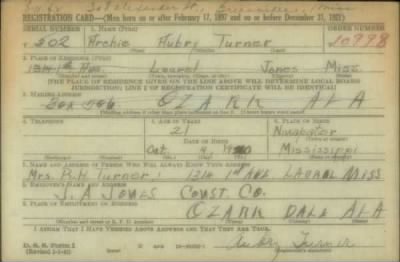 REGISTRATION CARD—(Men born on or after February 17, 1897 and on or before December 31, 1921)
SERIAL NUMBER 1. NAME (Print) ORDER NUMBER
502 Archie Aubry Turner 10998
2. PLACE OF RESIDENCE (Print)
1314 1st Ave Laurel Jones Miss.
[THE PLACE OF RESIDENCE GIVEN ON THE LINE ABOVE WILL DETERMINE LOCAL BOARD
JURISDICTION; LINE 2 OF REGISTRATION CERTIFICATE WILL BE IDENTICAL]
3. MAILING ADDRESS
Box OZARK ALA
4. TELEPHONE 5. AGE IN YEARS 6. PLACE OF BIRTH
21
DATE OF BIRTH
Oct. 4
Mississippi
7. NAME AND ADDRESS OF PERSON WHO WILL ALWAYS KNOW YOUR ADDRESS
Mrs. R.H. Turner 1314 1st AVE LAUREL MISS
8. EMPLOYER'S NAME AND ADDRESS
J. A JONES CONST. CO.
9. PLACE OF EMPLOYMENT OR BUSINESS
OZARK DALE ALA
I AFFIRM THAT I HAVE VERIFIED ABOVE ANSWERS AND THAT THEY ARE TRUE.
D. S. S. Form 1
Aubry Turner